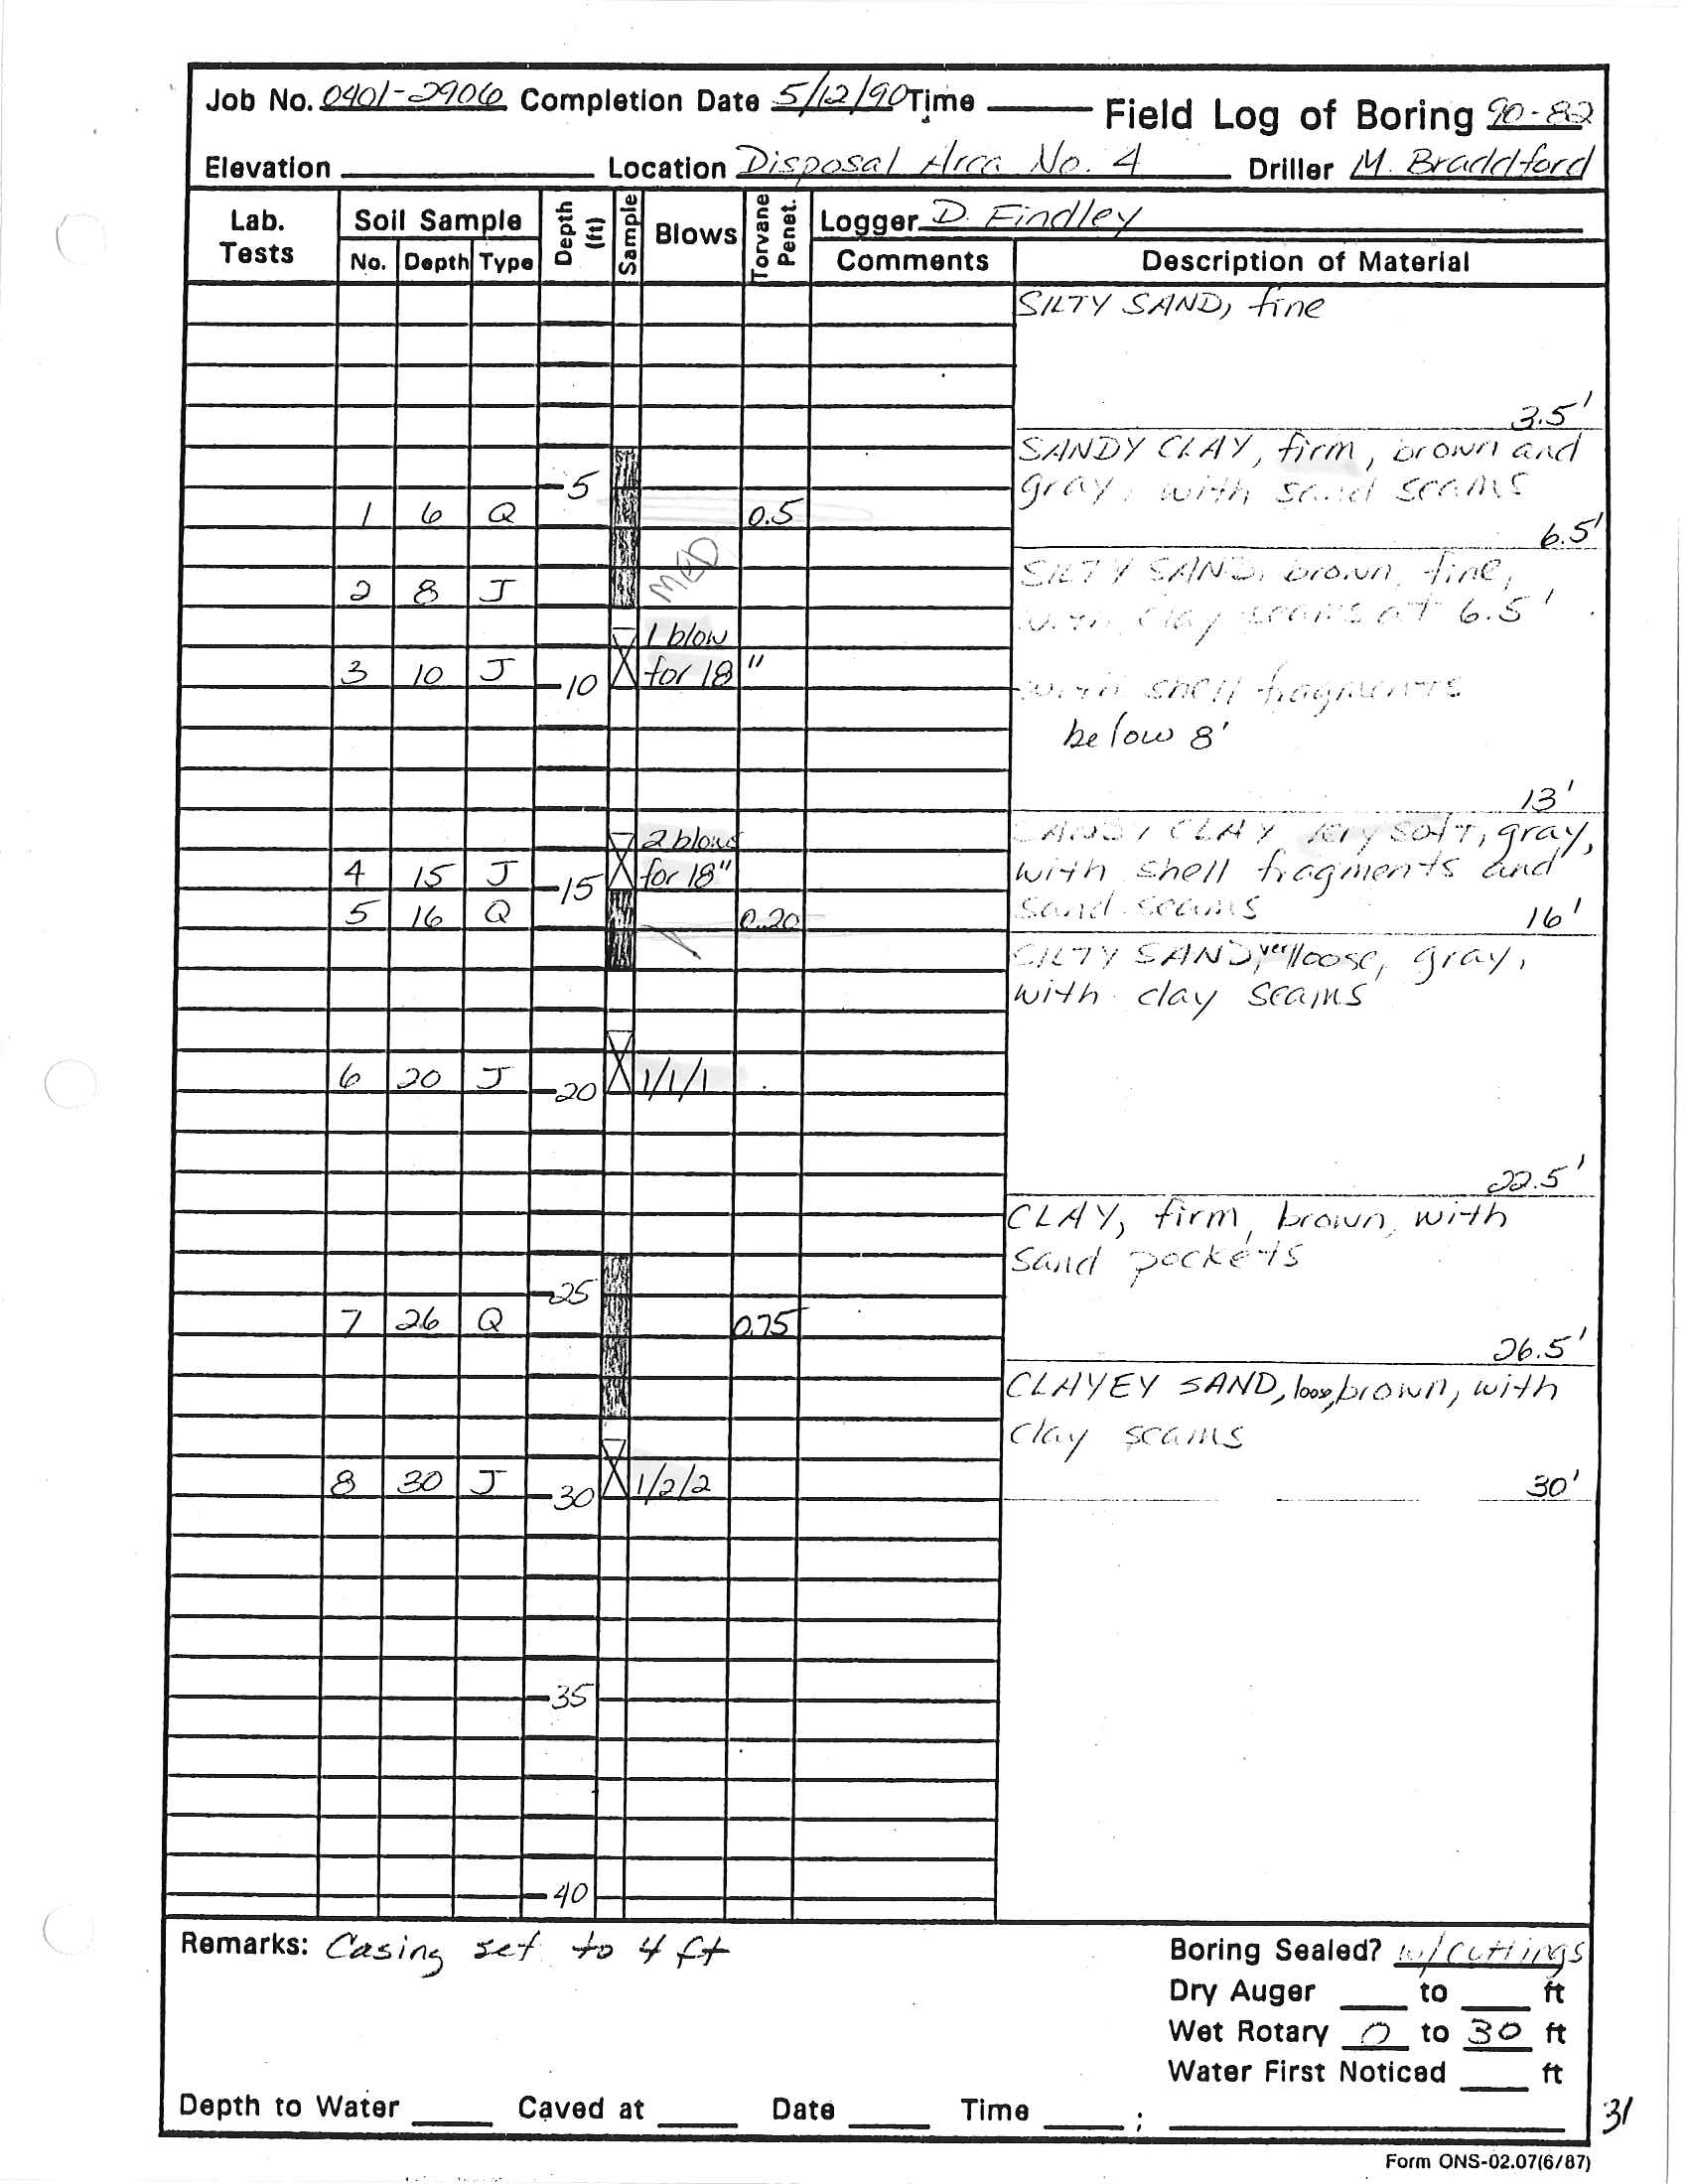 Job No. 0401-2906 Completion Date 5/12/90 Time Field Log of Boring 90-82
Elevation Location Disposal Area No. 4 Driller M. Braddford
Lab. Tests Soil Sample No. Depth Type Depth (ft) Sample Blows Torvane Penet. Logger D. Findley
Comments Description of Material
SILTY SAND, fine
3.5'
SANDY CLAY, firm, brown and
5 gray, with sand seams
1 6 Q 0.5
6.5'
MED
SILTY SAND, brown, fine,
2 8 J
with clay seams at 6.5'
1 blow
3 10 J 10 for 18"
with shell fragments
below 8'
13'
2 blows SANDY CLAY very soft, gray,
4 15 J 15 for 18" with shell fragments and
5 16 Q 0.20 sand seams 16'
SILTY SAND, very loose, gray,
with clay seams
6 20 J 20 1/1/1
22.5'
CLAY, firm, brown, with
sand pockets
25
7 26 Q 0.75
26.5'
CLAYEY SAND, loose, brown, with
clay seams
8 30 J 30 1/2/2 30'
35
40
Remarks: Casing set to 4 ft Boring Sealed? w/cuttings
Dry Auger to ft
Wet Rotary 0 to 30 ft
Water First Noticed ft
Depth to Water Caved at Date Time ;
31
Form ONS-02.07(6/87)